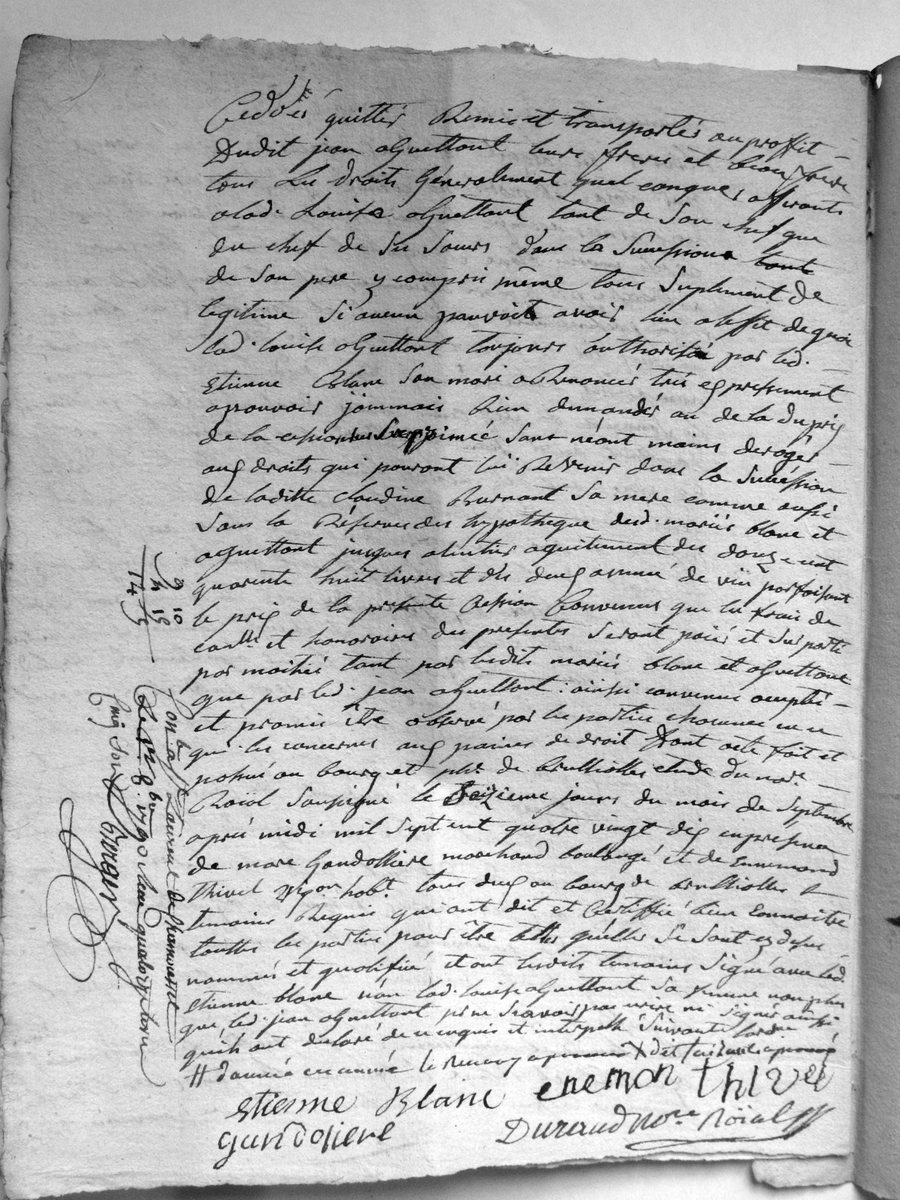 Ceddés quittés Remis et transportés au proffit
Dudit jean aguettant leurs freres et beau frere
tous Les droits Généralement quelconques afferants
alad. Louise aguettant tant de Son chef que
du chef de Ses Sœurs dans la Succession
de Son pere y compris même tous Suplement de
legitime Si aucun pouvoit avoir lieu a leffet de quoi
lad. louise aguettant toujours authorisée par led.
etienne Blanc Son mari a Renoncés très expressement
a pouvoir jammais Rien demander au de la du prix
de la cession Sans néant moins deroger
aux droits qui pouront lui Revenir dans la Succession
de laditte Claudine Burnant Sa mere comme aussi
Sans la Réserves des hypotheque desd. mariés blanc et
aguettant jusques a lentier aquitement des douze cent
quarente huit livres et des deux année de vin parfaisant
le prix de la presente Cession Convenus que les frais de
et honoraires des presentes Seront paiés et Suportés
par moitiés tant par lesdits mariés blanc et aguettant
que par led. jean aguettant. ainsi convenu accepté
et promis être observé par les parties chacunes en ce
qui les concernes aux paines de droit Dont acte fait et
passé au bourg et de brulliolles etude du nore
Roïal Soussigné le Seizieme jours du mois de Septembre
après midi mil Sept cent quatre vingt dix en presence
de marc Gandolliere marchand boulangé et de Ennemond
thivel habt. tous deux au bourg de brulliolles
temoins Requis qui ont dit et Certiffié bien Connoitre
touttes les parties pour être telles quelles Se Sont cy dessus
nommés et qualifié et ont lesdits temoins Signé avec led.
etienne blanc non lad. louise aguettant Sa femme non plus
que led. jean aguettant pr ne Scavoir pas ecrire ni Signer ainsi
quils ont déclaré de ce requis et interpellé Suivants
# d'année en année le renvoy
etienne Blanc enemon thivel
gandoliere Durand Nore Roïal
3 10
14 5
Con. à St. Laurent de Chamousset
Le 1er 8bre 1790 Reçu quatorze livres
cinq Sous